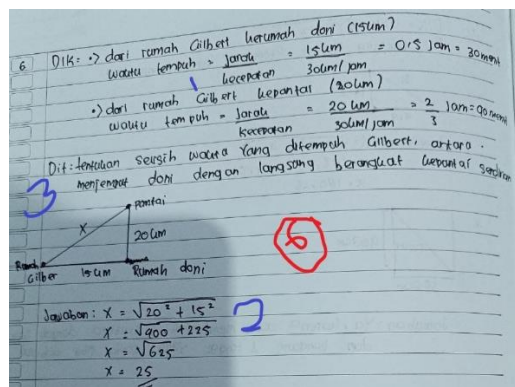 6 DIK: •) dari rumah Gilbert kerumah doni (15 km)
waktu tempuh = jarak / kecepatan = 15 km / 30 km/jam = 0,5 jam = 30 menit
1
•) dari rumah Gilbert kepantai (20 km)
waktu tempuh = jarak / kecepatan = 20 km / 30 km/jam = 2/3 jam = 90 menit
Dit: tentukan selisih waktu yang ditempuh Gilbert, antara
menjemput doni dengan langsung berangkat kepantai sendirian
3
pantai
x
20 km
6
Rumah Gilber 15 km Rumah doni
Jawaban: x = √20² + 15² 2
x = √400 + 225
x = √625
x = 25